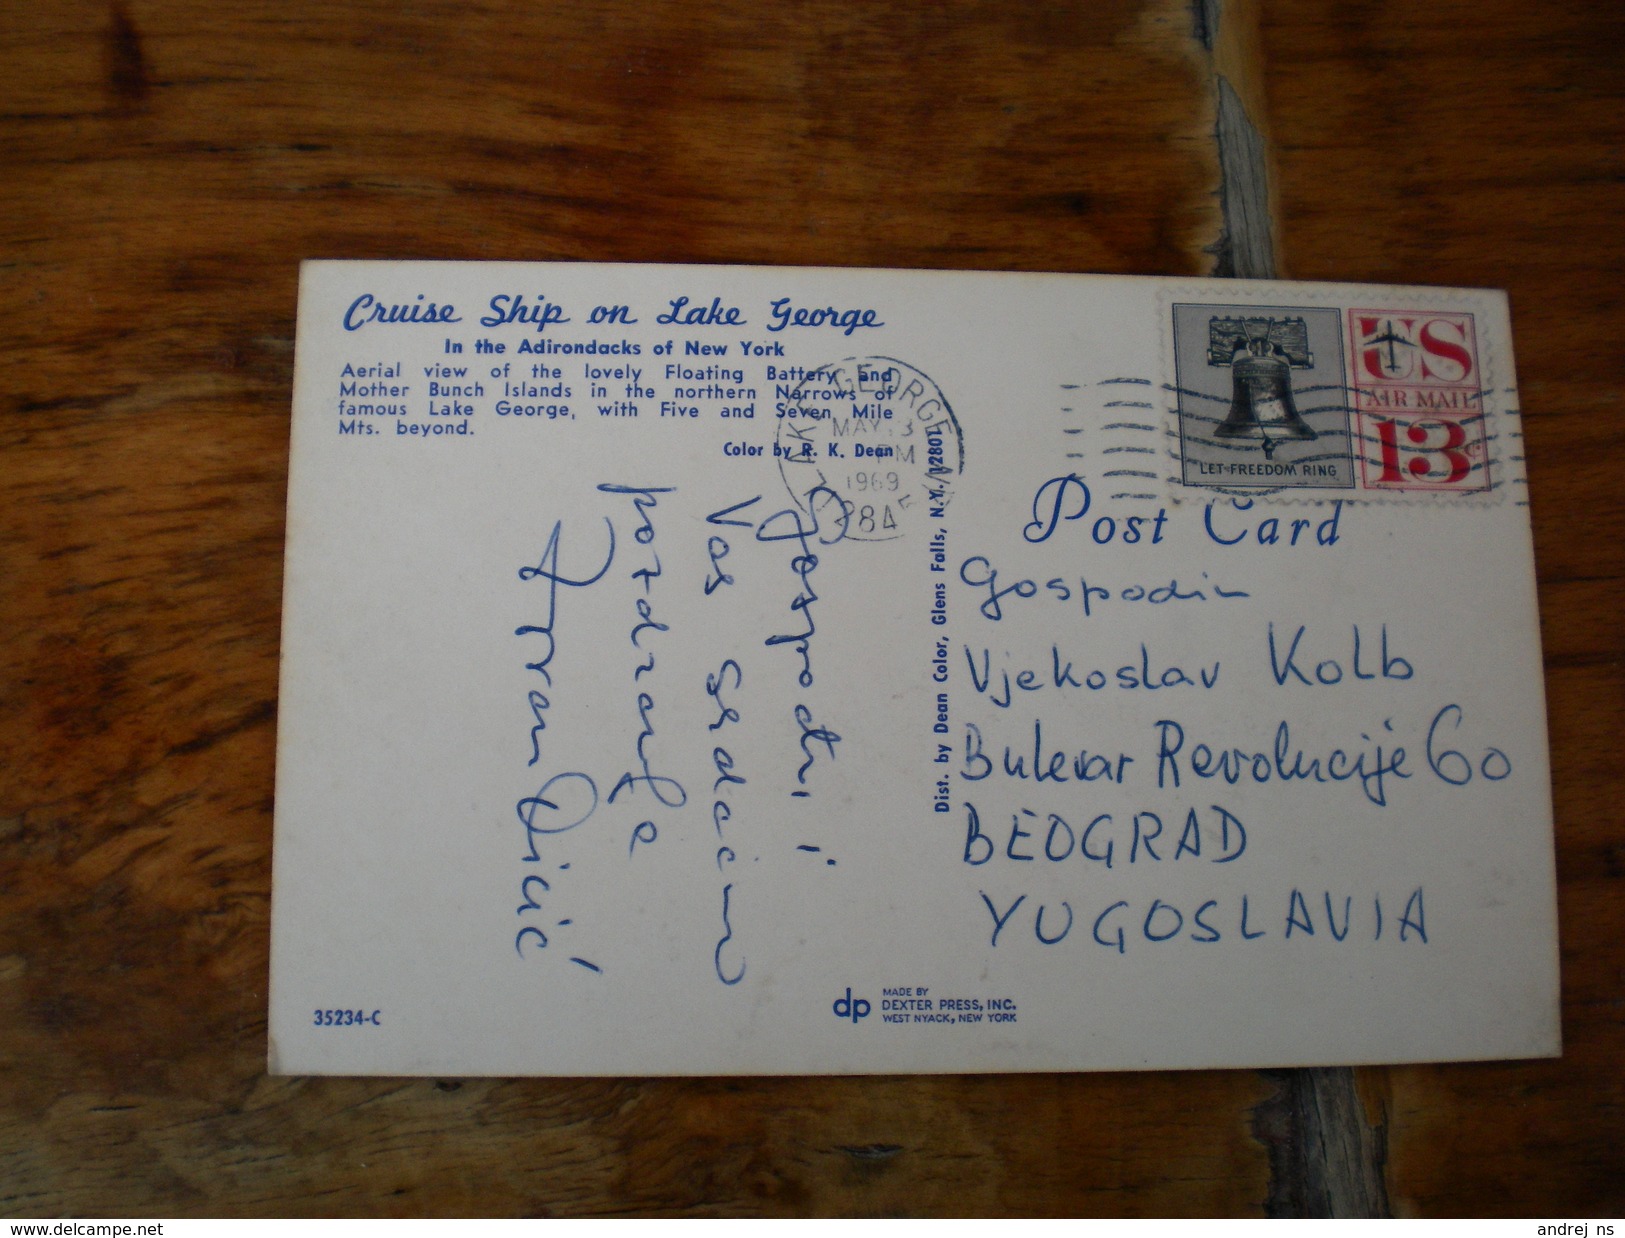 Cruise Ship on Lake George
In the Adirondacks of New York
Aerial view of the lovely Floating Battery and
Mother Bunch Islands in the northern Narrows of
famous Lake George, with Five and Seven Mile
Mts. beyond.
Color by R. K. Dean
LAKE GEORGE
MAY 13
PM
1969
1284
Gospodi,
Vas srdačno
pozdravlja
35234-C
Dist. by Dean Color, Glens Falls, N.Y. 12801
dp
MADE BY
DEXTER PRESS, INC.
WEST NYACK, NEW YORK
LET FREEDOM RING
US
AIR MAIL
13c
Post Card
Gospodin
Vjekoslav Kolb
Bulevar Revolucije 60
BEOGRAD
YUGOSLAVIA
www.delcampe.net
andrej ns